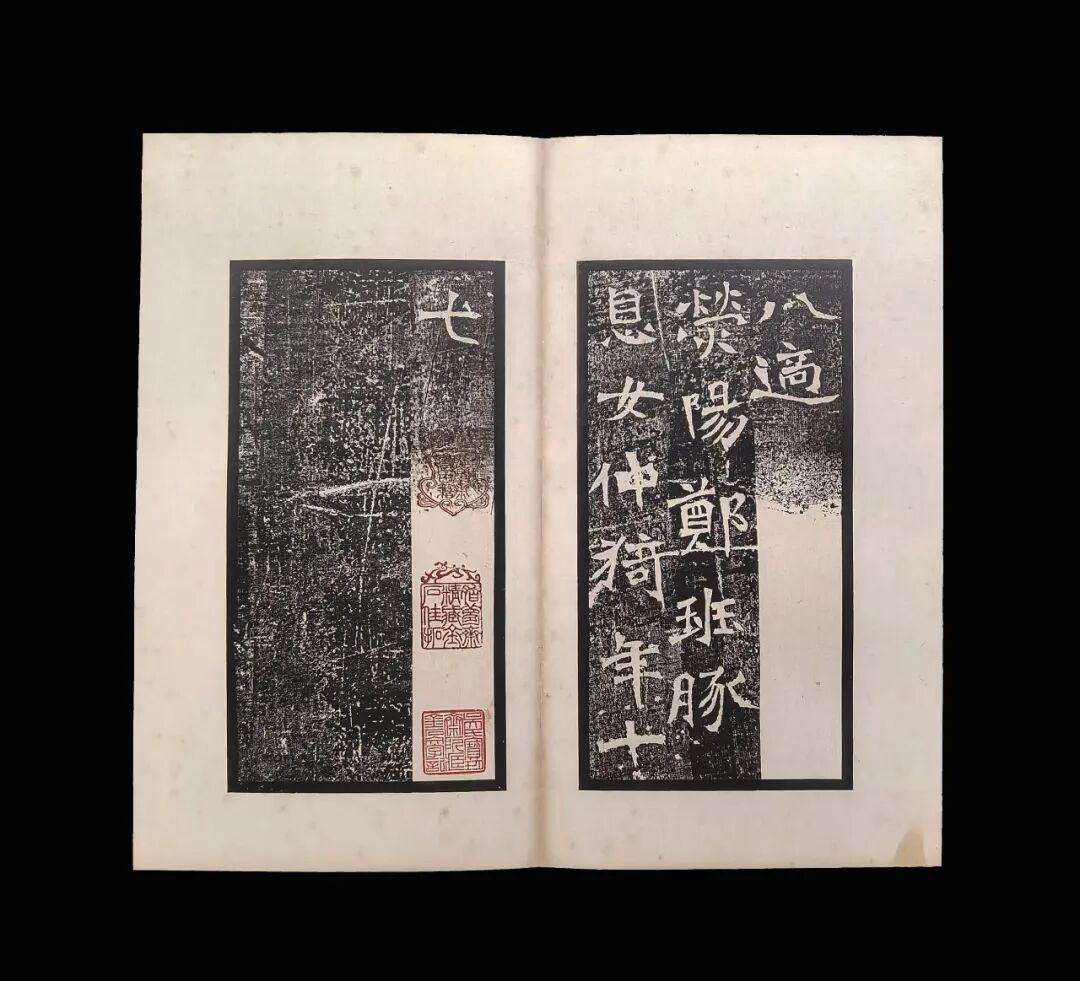 八適
滎陽鄭班豚
息女仲猗年十
七